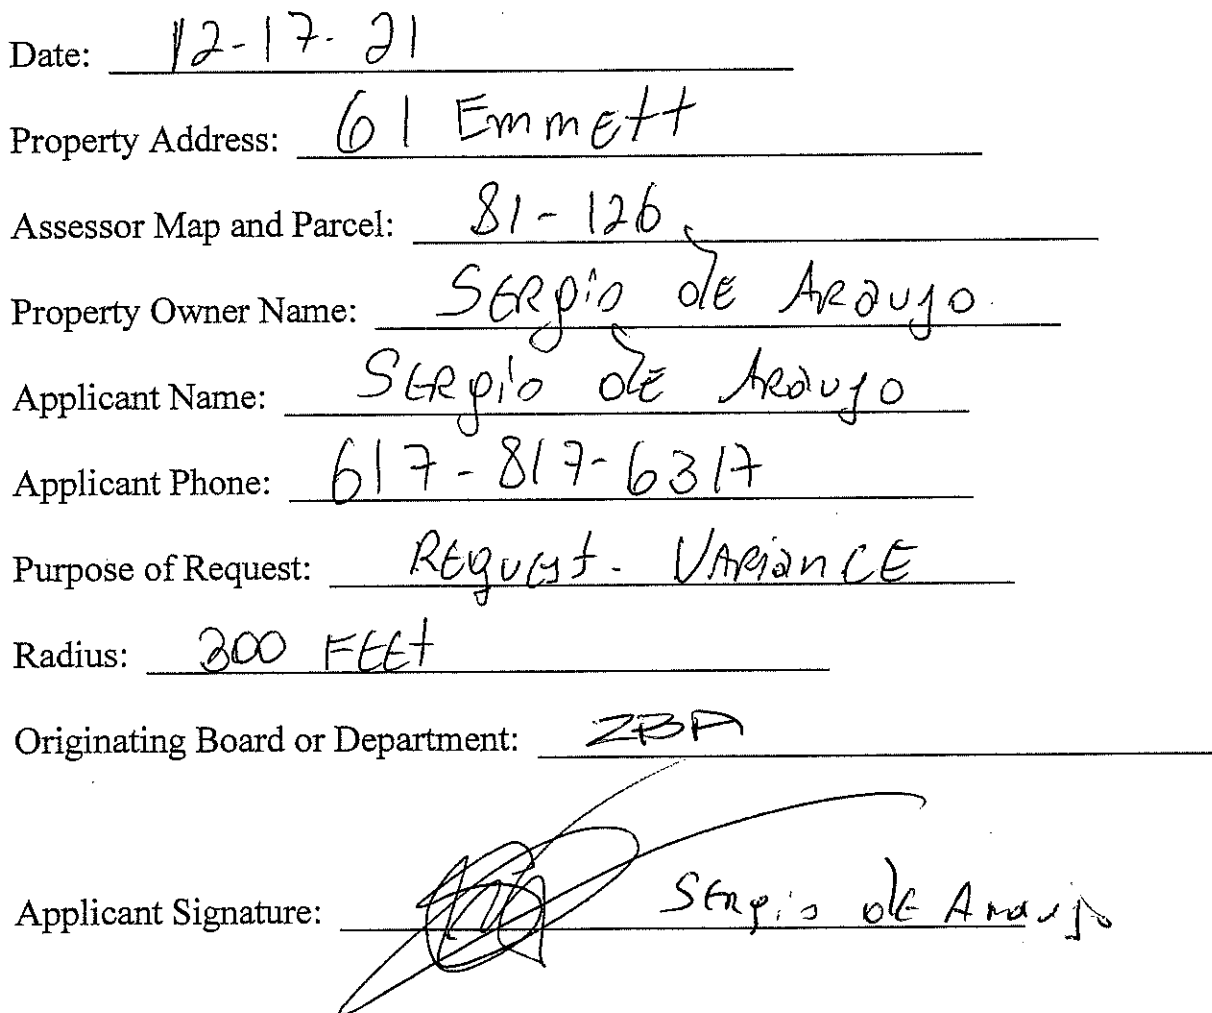 Date: 12-17-21
Property Address: 61 Emmett
Assessor Map and Parcel: 81-126
Property Owner Name: Sergio de Araujo
Applicant Name: Sergio de Araujo
Applicant Phone: 617-817-6317
Purpose of Request: Request - Variance
Radius: 300 FEEt
Originating Board or Department: ZBA
Applicant Signature: Sergio de Araujo